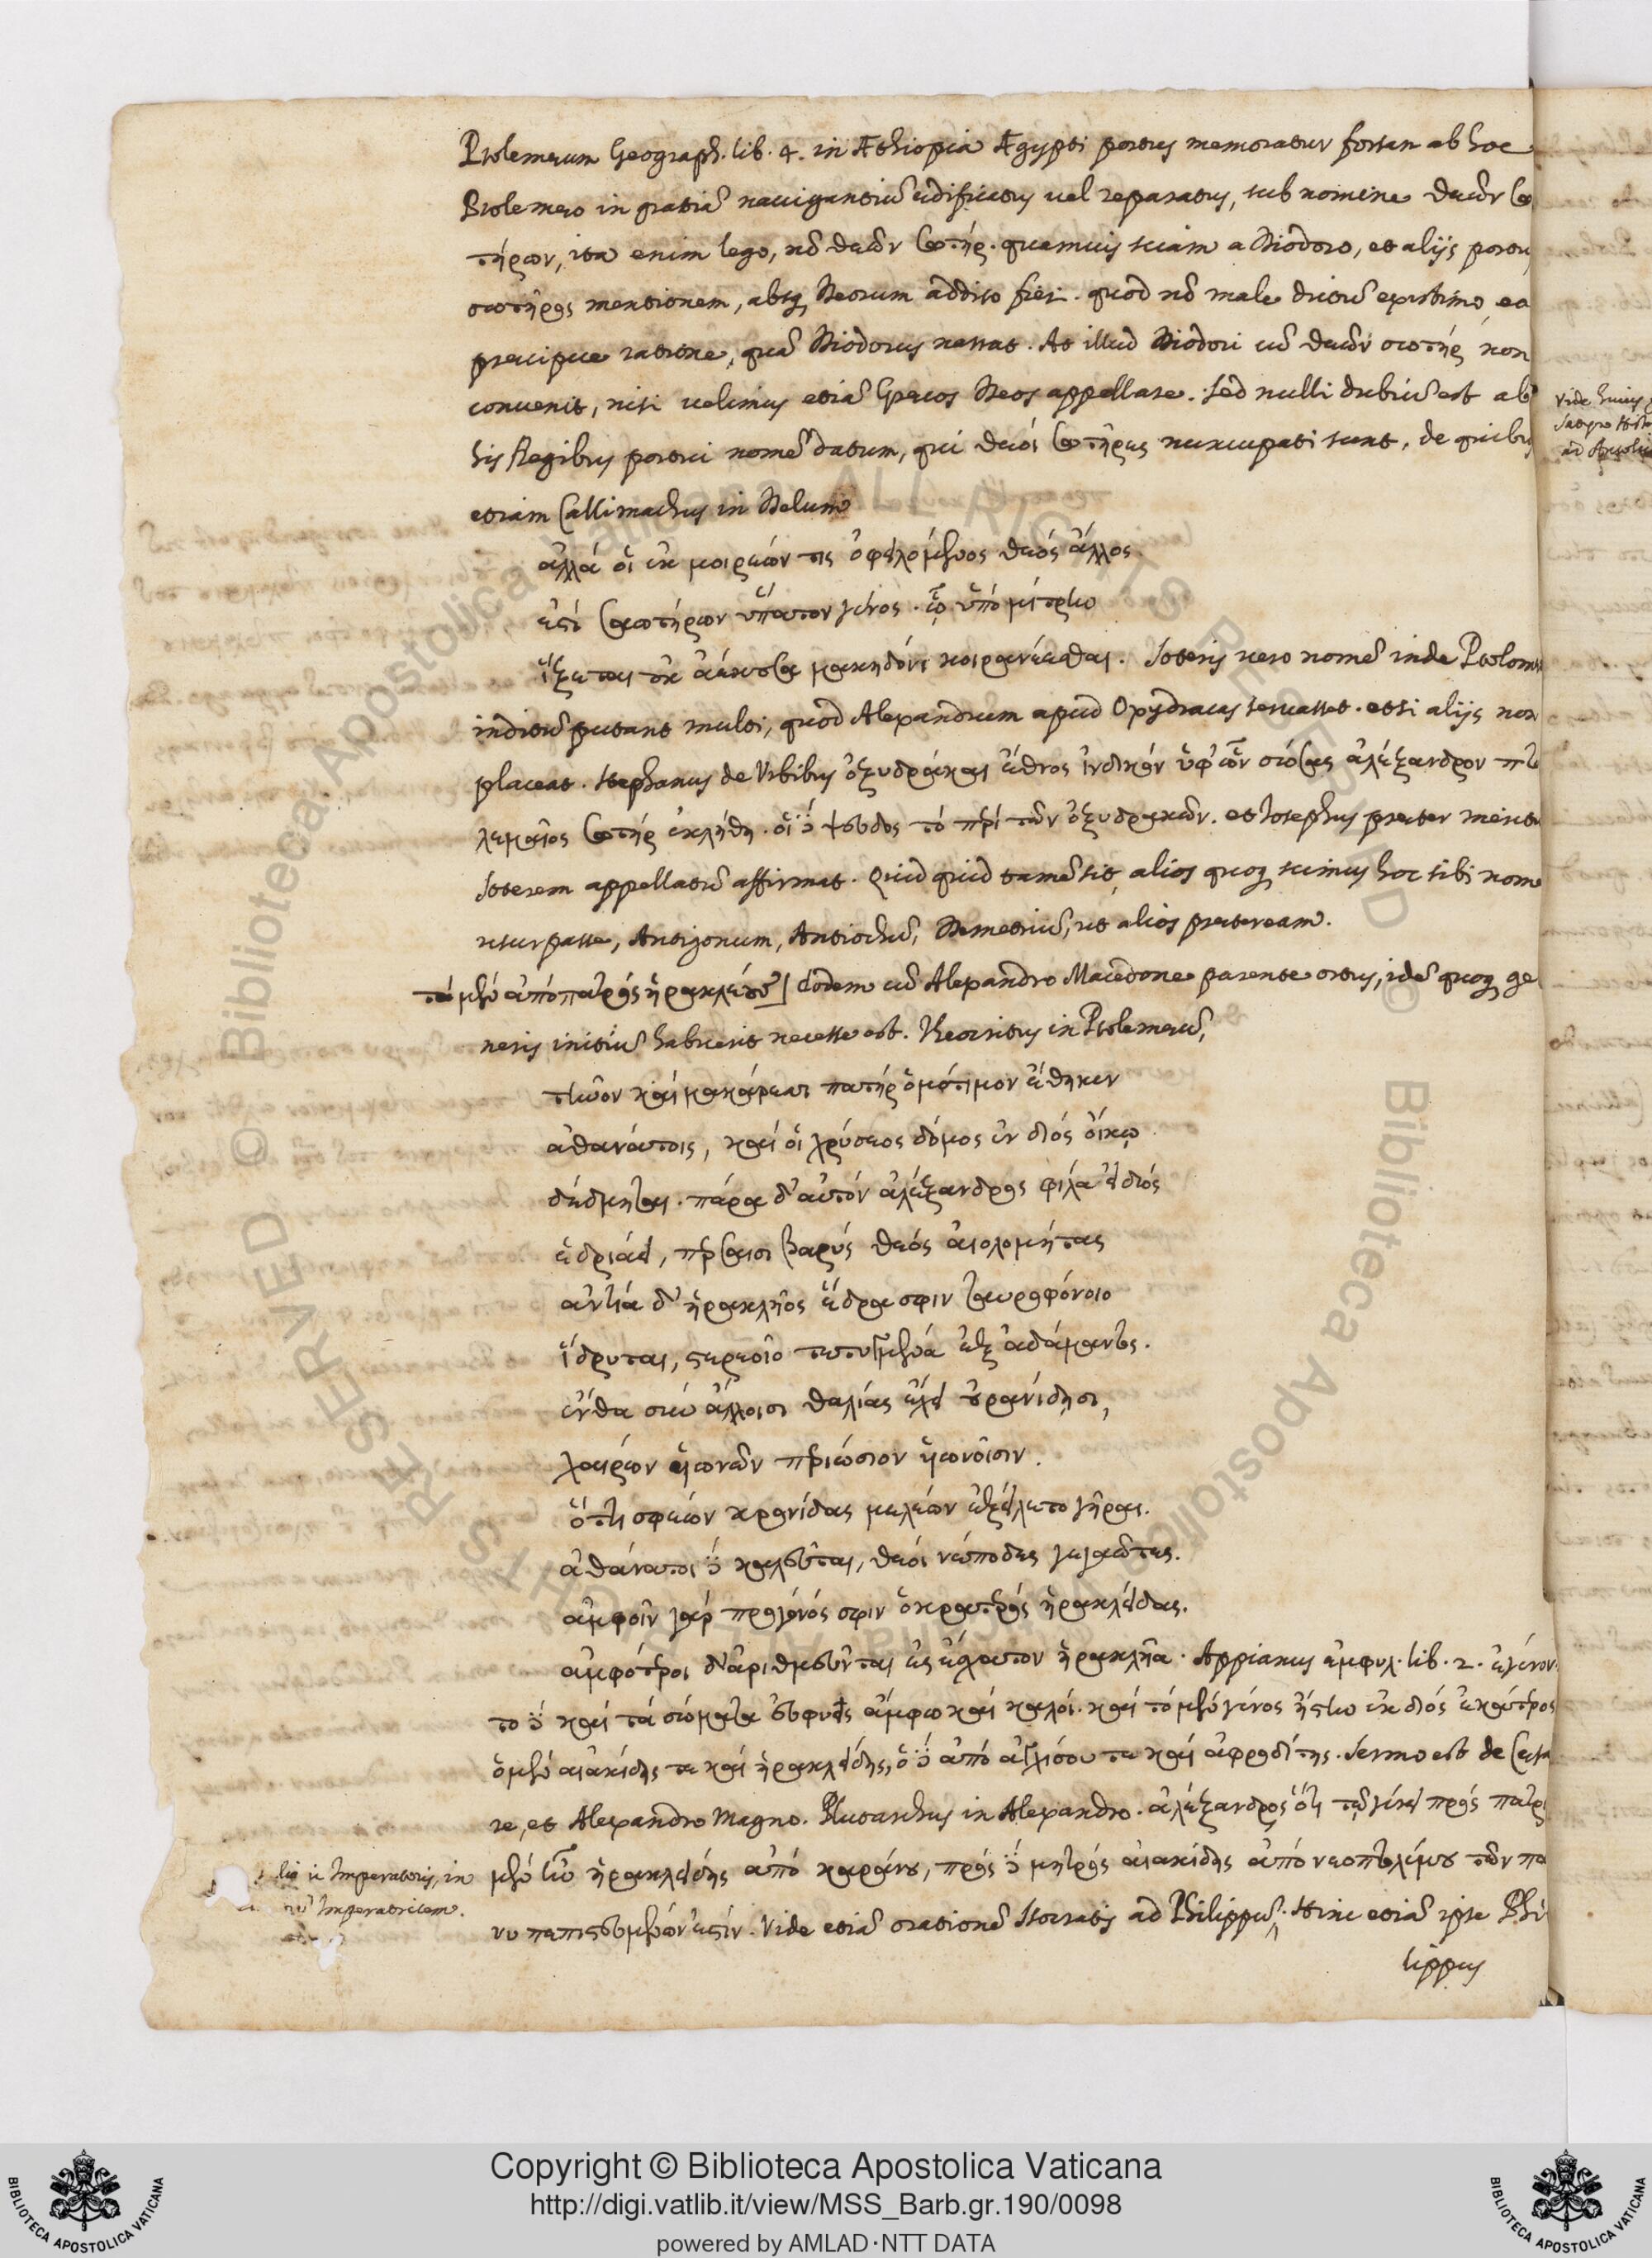 Ptolemæum Geograph. lib. 4. in Æthiopia Ægypti portus memoratur forsan ab hoc
Ptolemæo in gratiā nauigantiū ædificatus uel reparatus, sub nomine θεῶν σω
τήρων, ita enim lego, nō θεῶν σωτήρ. quamuis sciam a Diodoro, et alijs portus
σωτῆρος mentionem, absq Deorum addito fieri. quod nō male dictū existimo, ea
præcipue ratione, quā Diodorus narrat. At illud Diodori cū θεῶν σωτήρ non
conuenit, nisi uelimus etiā Græcos Deos appellare. sed nulli dubiū est ab
his Regibus portui nomē datum, qui θεοί σωτῆρες nuncupati sunt, de quibus
etiam Callimachus in Delum
ἀλλά οἱ ἐκ μοιρέων τις ὀφειλόμενος θεός ἄλλος
ἐστί σαωτήρων ὕπατον γένος. ᾧ ὑπό μίτρην
ἵξεται οὐκ ἀέκουσα μακηδόνι κοιρανέεσθαι. Soteris uero nomē inde Ptolomæo
inditū putant multi, quod Alexandrum apud Oxydracas seruasset. etsi alijs non
placeat. Stephanus de Vrbibus ὀξυδράκαι ἔθνος ἰνδικόν ὑφ' ὧν σώσας ἀλέξανδρον πτο
λεμαῖος σωτήρ ἐκλήθη. οἱ δέ ψεῦδος τό περί τῶν ὀξυδρακῶν. et Iosephus præter meritū
Soterem appellatū affirmat. Quid quid tamē sit, alios quoq scimus hoc sibi nomē
usurpasse, Antigonum, Antiochū, Demetriū, ut alios præteream.
τά μέν ἀπό πατρός ἡρακλέους] Eodem cū Alexandro Macedone parente ortus, idē quoq ge
neris initiū habuerit necesse est. Theocritus in Ptolemæū,
τῆνον καί μακάρεσσι πατήρ ὁμότιμον ἔθηκεν
ἀθανάτοις, καί οἱ χρύσεος δόμος ἐν διός οἴκῳ
δέδμηται. πάρα δ' αὐτόν ἀλέξανδρος φίλα εἰδώς
ἑδριάει, πέρσαισι βαρύς θεός αἰολομήτας
ἀντία δ' ἡρακλῆος ἕδρα σφιν ταυροφόνοιο
ἵδρυται, στερεοῖο τετυγμένα ἐξ ἀδάμαντος.
ἔνθα σύν ἄλλοισι θαλίας ἔχει οὐρανίδῃσι,
χαίρων υἱωνῶν περιώσιον υἱωνοῖσιν.
ὅττι σφεων κρονίδας μελέων ἐξείλετο γῆρας.
ἀθάνατοι δέ καλεῦνται, θεοί νέποδες γεγαῶτες.
ἀμφοῖν γάρ πρόγονός σφιν ὁ κρατερός ἡρακλείδας.
ἀμφότεροι δ' ἀριθμεῦνται ἐς ἔσχατον ἡρακλῆα. Appianus ἐμφυλ. lib. 2. ἐγένον
το δέ καί τά σώματα εὐφυεῖς ἄμφω καί καλοί. καί τό μέν γένος ἤστην ἐκ διός ἑκάτερος
ὁ μέν αἰακίδης τε καί ἡρακλείδης, ὁ δέ ἀπό ἀγχίσου τε καί ἀφροδίτης. Sermo est de Cæsa
re, et Alexandro Magno. Plutarchus in Alexandro. ἀλέξανδρος ὅτι τῷ γένει πρός πατρός
μέν ἦν ἡρακλείδης ἀπό καράνου, πρός δέ μητρός αἰακίδης ἀπό νεοπτολέμου τῶν πά
νυ πεπιστευμένων ἐστίν. Vide etiā orationē Isocratis ad Philippū. Hinc etiā ipse Phi
lippus
Imperatoris, in
Imperatricem.